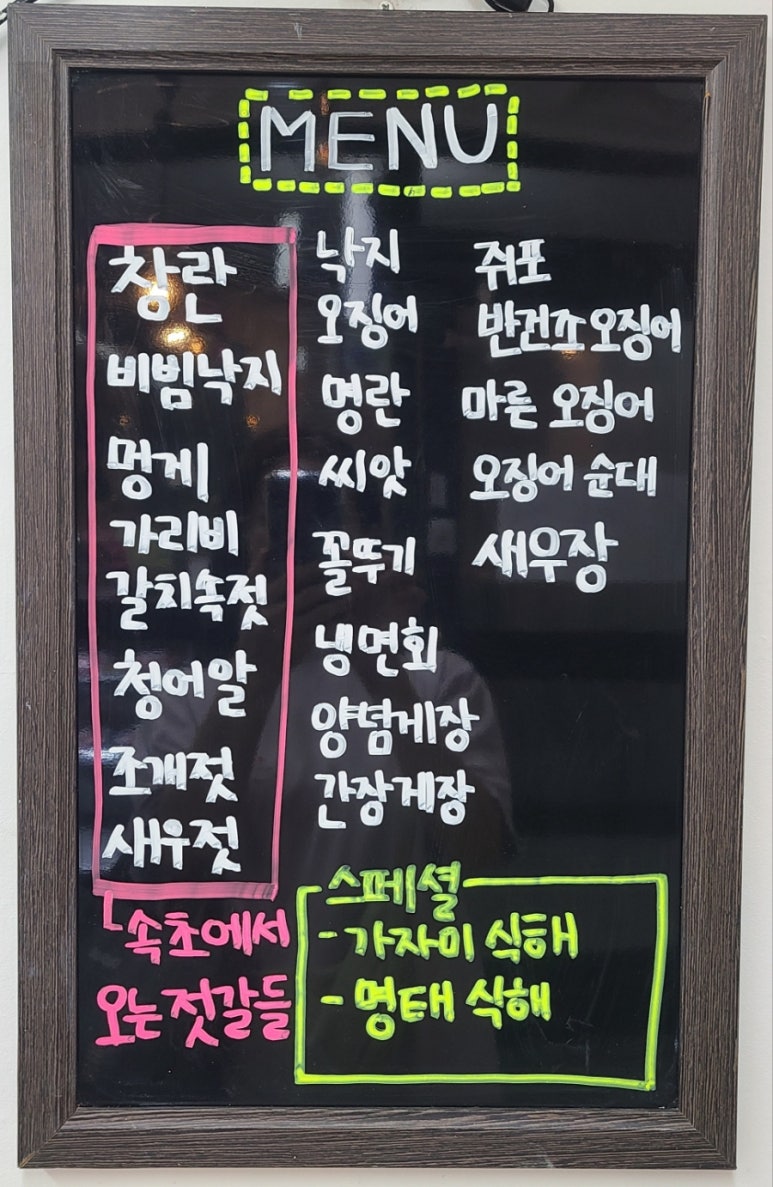 MENU
창란
비빔낙지
멍게
가리비
갈치속젓
청어알
조개젓
새우젓
속초에서
오는 젓갈들
낙지
오징어
명란
씨앗
꼴뚜기
냉면회
양념게장
간장게장
쥐포
반건조 오징어
마른 오징어
오징어 순대
새우장
스페셜
- 가자미 식해
- 명태 식해